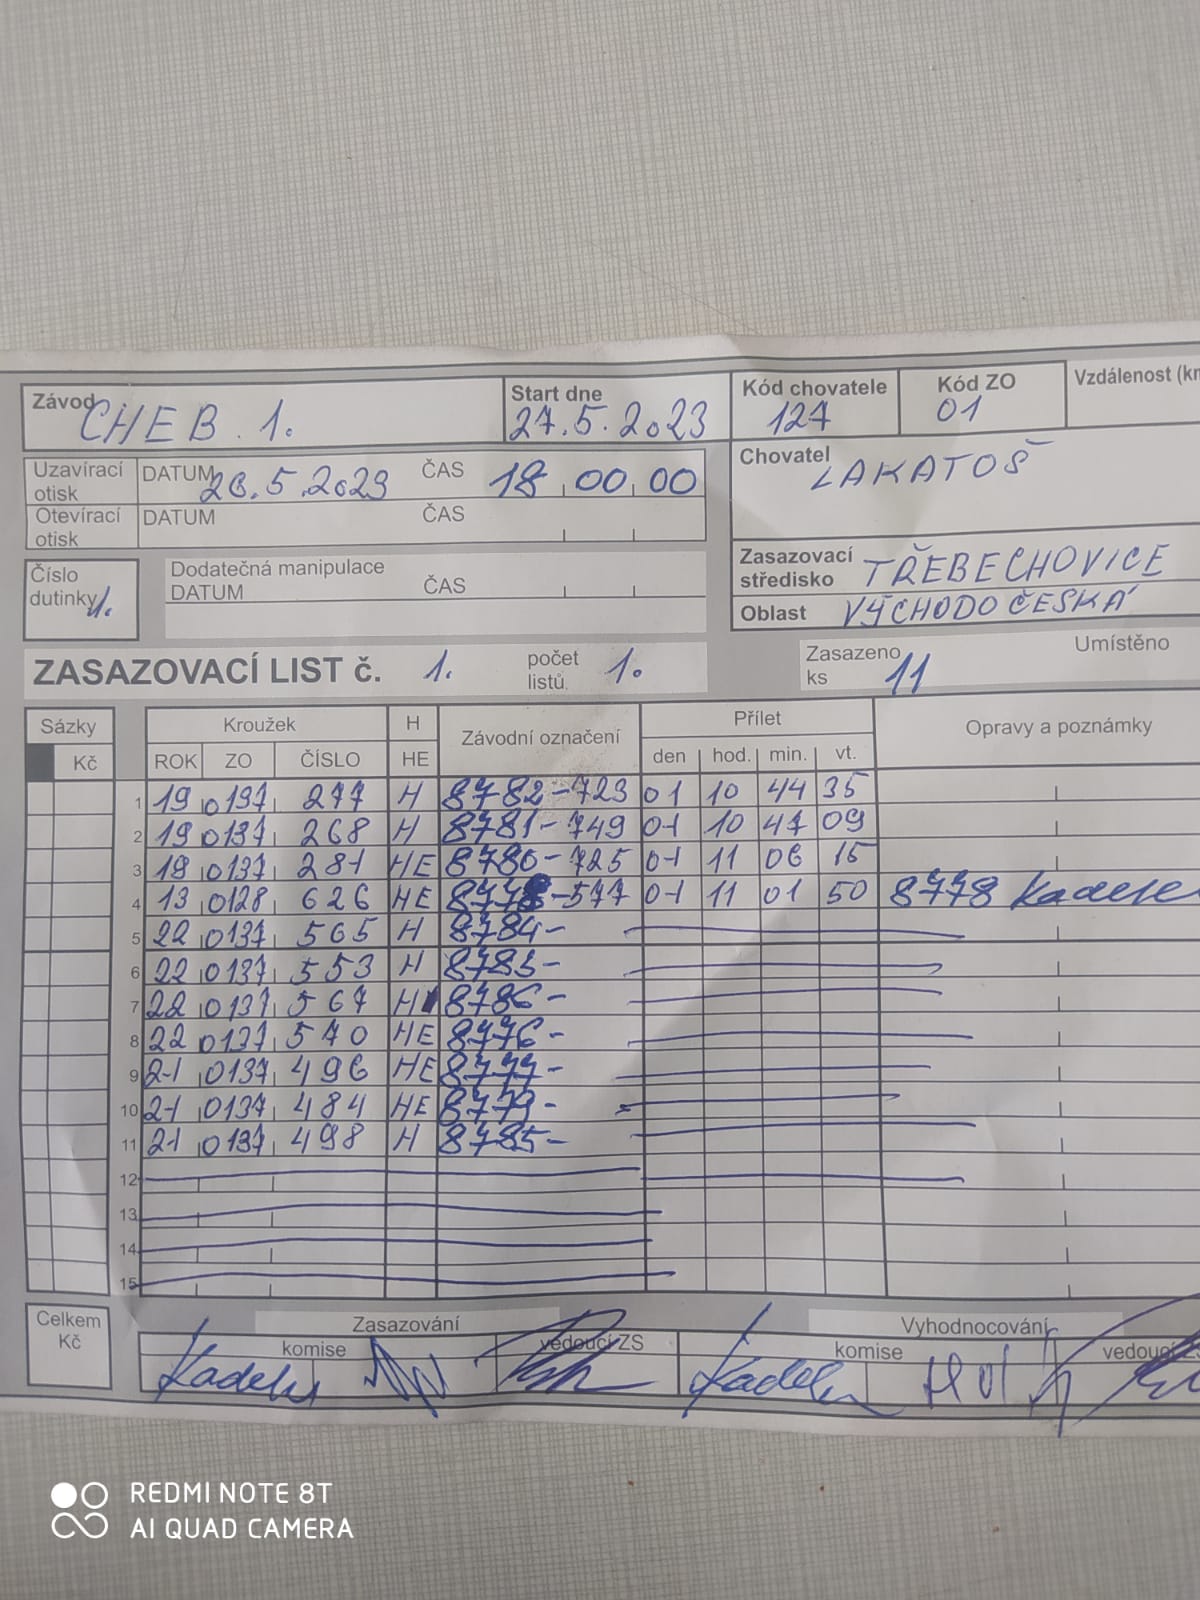 Závod CHEB 1.
Start dne 27.5.2023
Kód chovatele 127
Kód ZO 01
Vzdálenost (km
Uzavírací otisk DATUM 26.5.2023 ČAS 18 00 00
Otevírací otisk DATUM ČAS
Chovatel LAKATOŠ
Číslo dutinky 1.
Dodatečná manipulace
DATUM ČAS
Zasazovací středisko TŘEBECHOVICE
Oblast VÝCHODOČESKÁ
ZASAZOVACÍ LIST č. 1. počet listů 1.
Zasazeno ks 11
Umístěno
Sázky Kroužek H Závodní označení Přílet Opravy a poznámky
Kč ROK ZO ČÍSLO HE den hod. min. vt.
1 19 0137 277 H 8782-723 01 10 44 35
2 19 0137 268 H 8781-749 01 10 47 09
3 19 0137 281 HE 8780-725 01 11 06 15
4 13 0128 626 HE 8778-577 01 11 01 50 8778
5 22 0137 565 H 8784-
6 22 0137 553 H 8783-
7 22 0137 567 H 8786-
8 22 0137 570 HE 8776-
9 21 0137 496 HE 8777-
10 21 0137 484 HE 8779-
11 21 0137 498 H 8785-
12
13
14
15
Celkem Kč
Zasazování Vyhodnocování
komise vedoucí ZS komise vedoucí
REDMI NOTE 8T
AI QUAD CAMERA